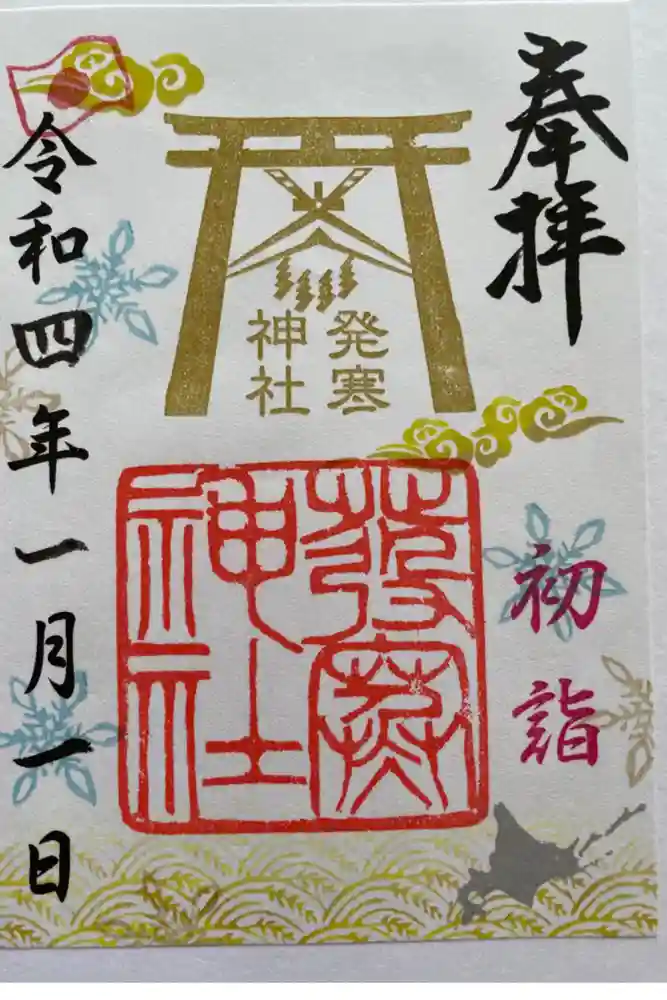 奉拝
発寒
神社
初詣
發寒
神社
令和四年一月一日